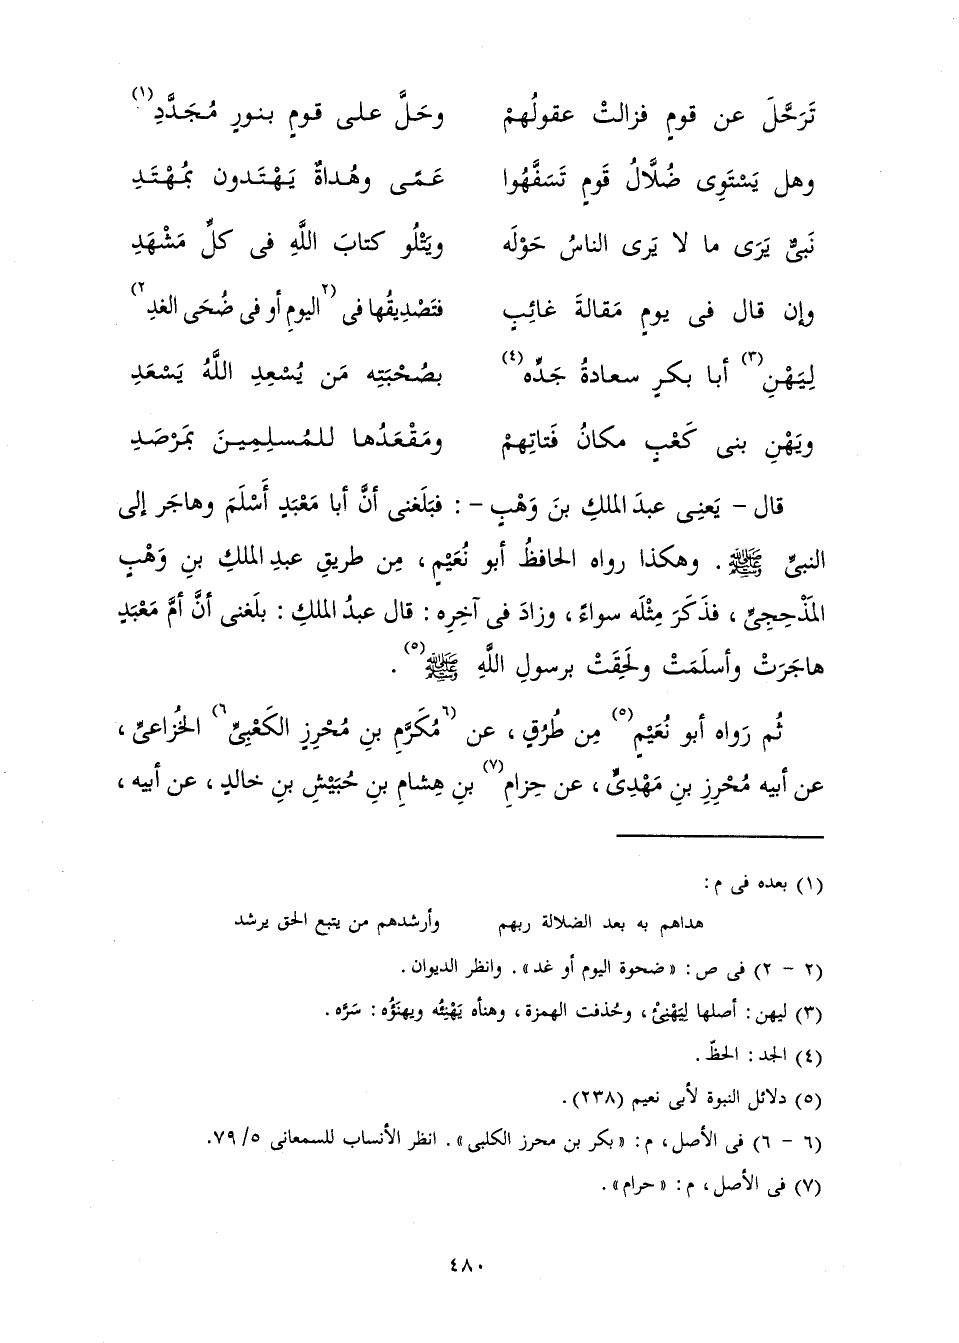 تَرَحَّلَ عن قومٍ فزالتْ عقولُهمْ وحَلَّ على قومٍ بنورٍ مُجَدَّدِ(١)
وهل يَسْتَوِى ضُلَّالُ قَومٍ تَسَفَّهُوا عَمًى وهُداةٌ يَهْتَدون بمُهْتَدِ
نَبىٌّ يَرَى ما لا يَرى الناسُ حَوْلَه ويَتْلُو كتابَ اللَّهِ فى كلِّ مَشْهَدِ
وإن قال فى يومٍ مَقالةَ غائِبٍ فتَصْدِيقُها فى (٢اليومِ أو فى ضُحَى الغدِ٢)
لِيَهْنِ(٣) أبا بكرٍ سعادةُ جَدِّه(٤) بصُحْبَتِه مَن يُسْعِدِ اللَّهُ يَسْعَدِ
ويَهْنِ بنى كَعْبٍ مكانُ فَتاتِهمْ ومَقْعَدُها للمُسلِمِينَ بمَرْصَدِ
قال – يَعنِى عبدَ الملكِ بنَ وَهْبٍ – : فبَلَغنى أنَّ أبا مَعْبَدٍ أَسْلَمَ وهاجَر إلى
النبىِّ ﷺ . وهكذا رواه الحافظُ أبو نُعَيْمٍ ، مِن طريقِ عبدِ الملكِ بنِ وَهْبٍ
المَذْحِجِىِّ ، فذَكَرَ مِثْلَه سواءً ، وزادَ فى آخِرِه : قال عبدُ الملكِ : بلَغنى أنَّ أمَّ مَعْبَدٍ
هاجَرَتْ وأسلَمَتْ ولَحِقَتْ برسولِ اللَّهِ ﷺ(٥) .
ثُم رَواه أبو نُعَيْمٍ(٥) مِن طُرُقٍ ، عن (٦مُكَرَّمِ بنِ مُحْرِزٍ الكَعْبِىِّ٦) الخُزاعىِّ ،
عن أبيه مُحْرِزِ بنِ مَهْدِىٍّ ، عن حِزامِ(٧) بنِ هِشامِ بنِ حُبَيْشِ بنِ خالدٍ ، عن أبيه ،
(١) بعده فى م :
هداهم به بعد الضلالة ربهم وأرشدهم من يتبع الحق يرشد
(٢ – ٢) فى ص : « ضحوة اليوم أو غد » . وانظر الديوان .
(٣) ليهن : أصلها لِيَهْنِئْ ، وحُذفت الهمزة ، وهنأه يَهْنِئُه ويهنَؤُه : سَرَّه .
(٤) الجد : الحظّ .
(٥) دلائل النبوة لأبى نعيم (٢٣٨) .
(٦ – ٦) فى الأصل ، م : « بكر بن محرز الكلبى » . انظر الأنساب للسمعانى ٥/ ٧٩.
(٧) فى الأصل ، م : « حرام » .
٤٨٠